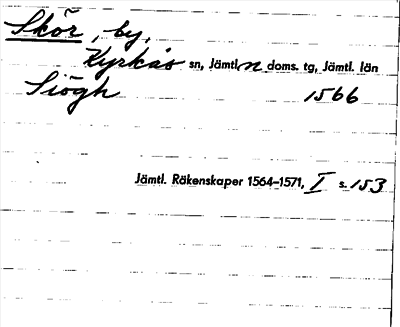 Skör, by,
Kyrkås sn, Jämtl. n doms. tg, Jämtl. län
Siögh 1566
Jämtl. Räkenskaper 1564–1571, I s. 153